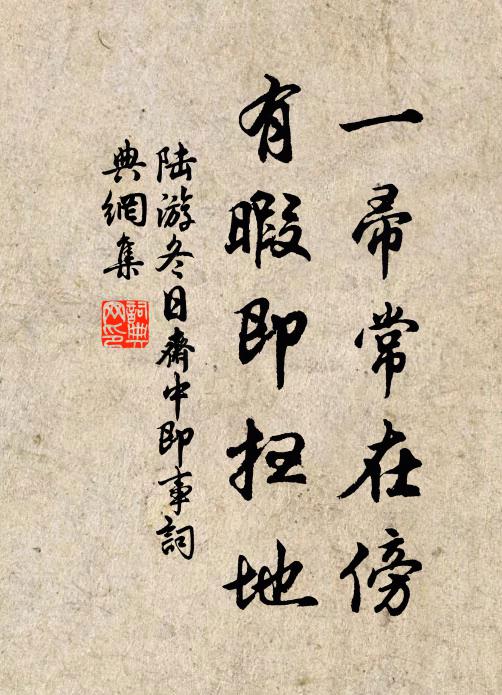 一帚常在傍
有暇即扫地
陆游冬日斋中即事词
典網集
詞典網印